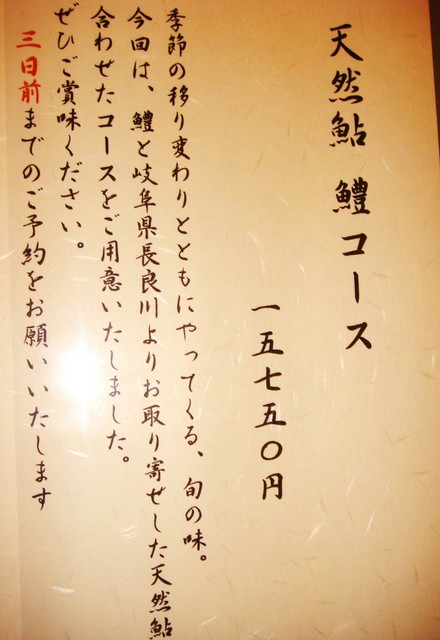 天然鮎 鱧コース
一五七五〇円
季節の移り変わりとともにやってくる、旬の味。
今回は、鱧と岐阜県長良川よりお取り寄せした天然鮎
合わせたコースをご用意いたしました。
ぜひご賞味ください。
三日前までのご予約をお願いいたします